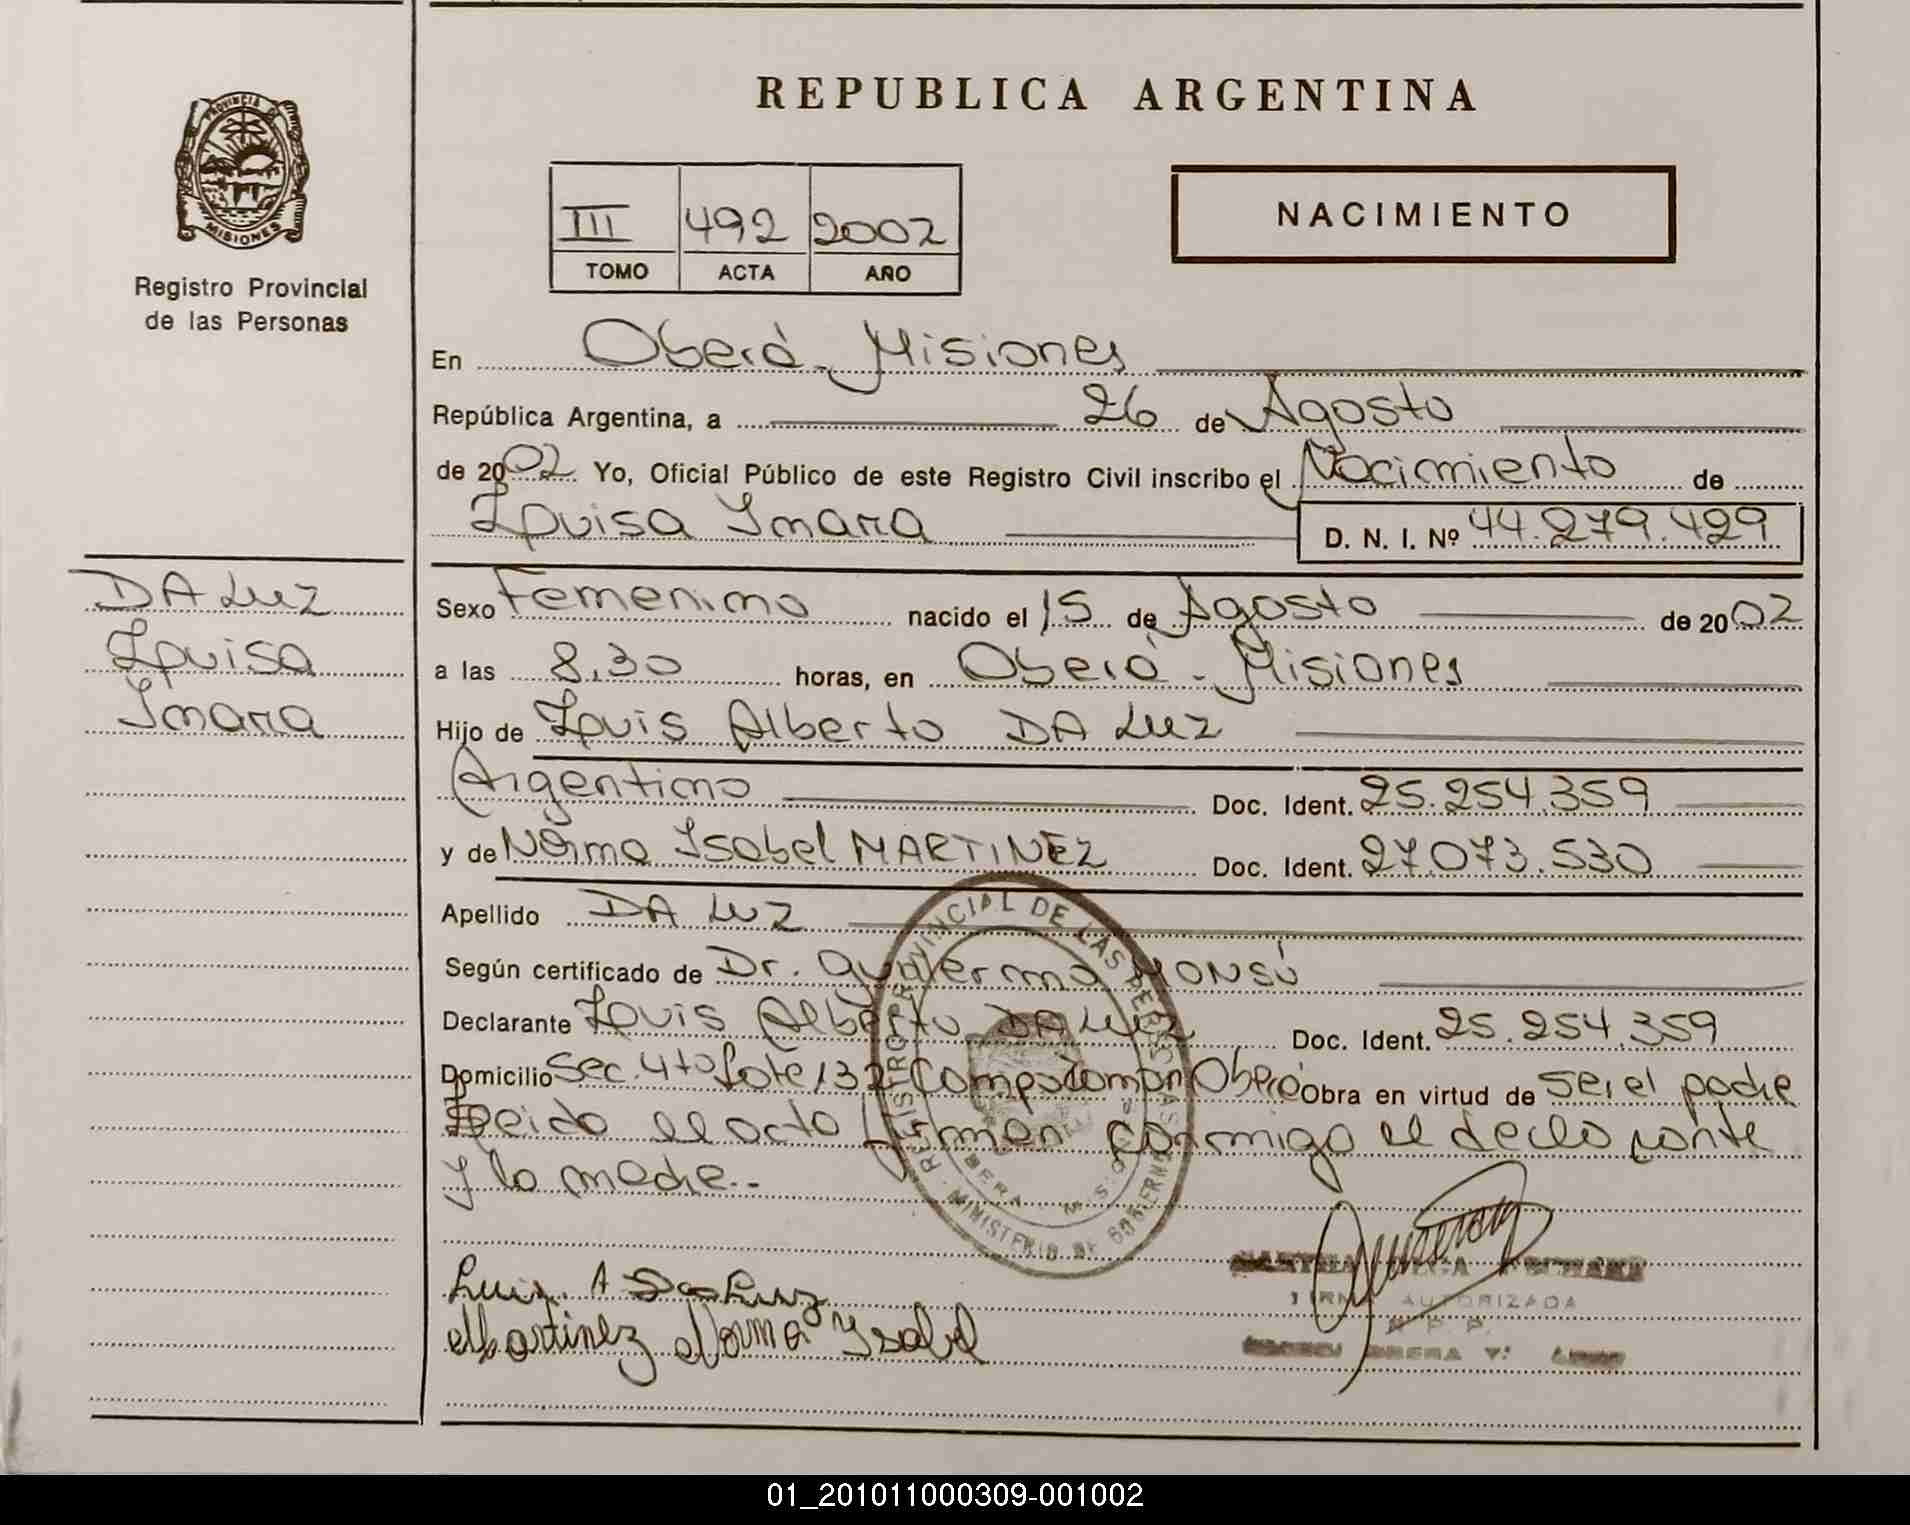 REPUBLICA ARGENTINA
PROVINCIA DE
MISIONES
Registro Provincial
de las Personas
III 492 2002
TOMO ACTA AÑO
NACIMIENTO
En Oberá - Misiones
República Argentina, a 26 de Agosto
de 2002 Yo, Oficial Público de este Registro Civil inscribo el Nacimiento de
Louisa Imara D. N. I. Nº 44.279.429
DA LUZ
Louisa
Imara
Sexo Femenino nacido el 15 de Agosto de 2002
a las 8,30 horas, en Oberá - Misiones
Hijo de Louis Alberto DA LUZ
Argentino Doc. Ident. 25.254.359
y de Norma Isabel MARTINEZ Doc. Ident. 27.073.530
Apellido DA LUZ
Según certificado de Dr. Guillermo MONSÚ
Declarante Louis Alberto DA LUZ Doc. Ident. 25.254.359
Domicilio Sec. 4to Lote 132 Oberá Obra en virtud de ser el padre
Leido el acto firman conmigo el declo ronte
y la madre..
REGISTRO PROVINCIAL DE LAS PERSONAS
MINISTERIO DE GOBIERNO
Luis. A Da Luz
Martinez Norma Ysabel
FIRMA AUTORIZADA
R. P. P.
01_201011000309-001002